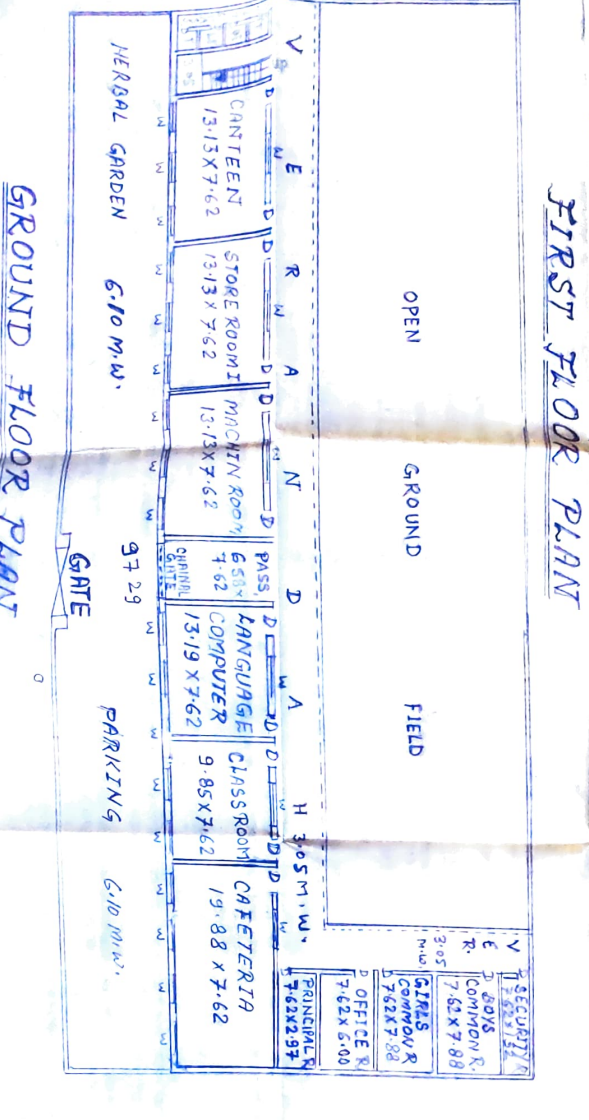 FIRST FLOOR PLAN
OPEN GROUND FIELD
V E R A N D A H 3.05 M.W.
V
E
R.
3.05
M.W.
D SECURITY R
D BOYS
COMMON R.
7.62 X 7.88
GIRLS
COMMON R
D 7.62 X 7.88
D OFFICE R
7.62 X 6.00
PRINCIPAL R
7.62 X 2.97
CANTEEN
13.13 X 7.62
STORE ROOM I
13.13 X 7.62
MACHIN ROOM
13.13 X 7.62
PASS.
6.58 X
7.62
CHAINAL
GATE
LANGUAGE
COMPUTER
13.19 X 7.62
CLASS ROOM
9.85 X 7.62
CAFETERIA
19.88 X 7.62
HERBAL GARDEN 6.10 M.W.
9729
GATE
PARKING 6.10 M.W.
GROUND FLOOR PLAN